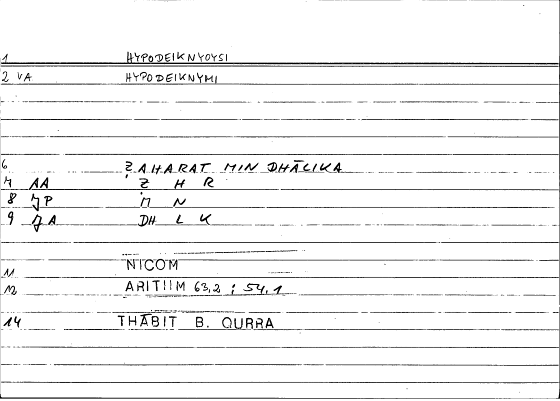 1 HYPODEIKNYOYSI
2 VA HYPODEIKNYMI
6 ẒAHARAT MIN DHĀLIKA
7 AA Ẓ H R
8 JP M N
9 JA DH L K
11 NICOM
12 ARITIIM 63,2 ; 54,1
14 THĀBIT B. QURRA